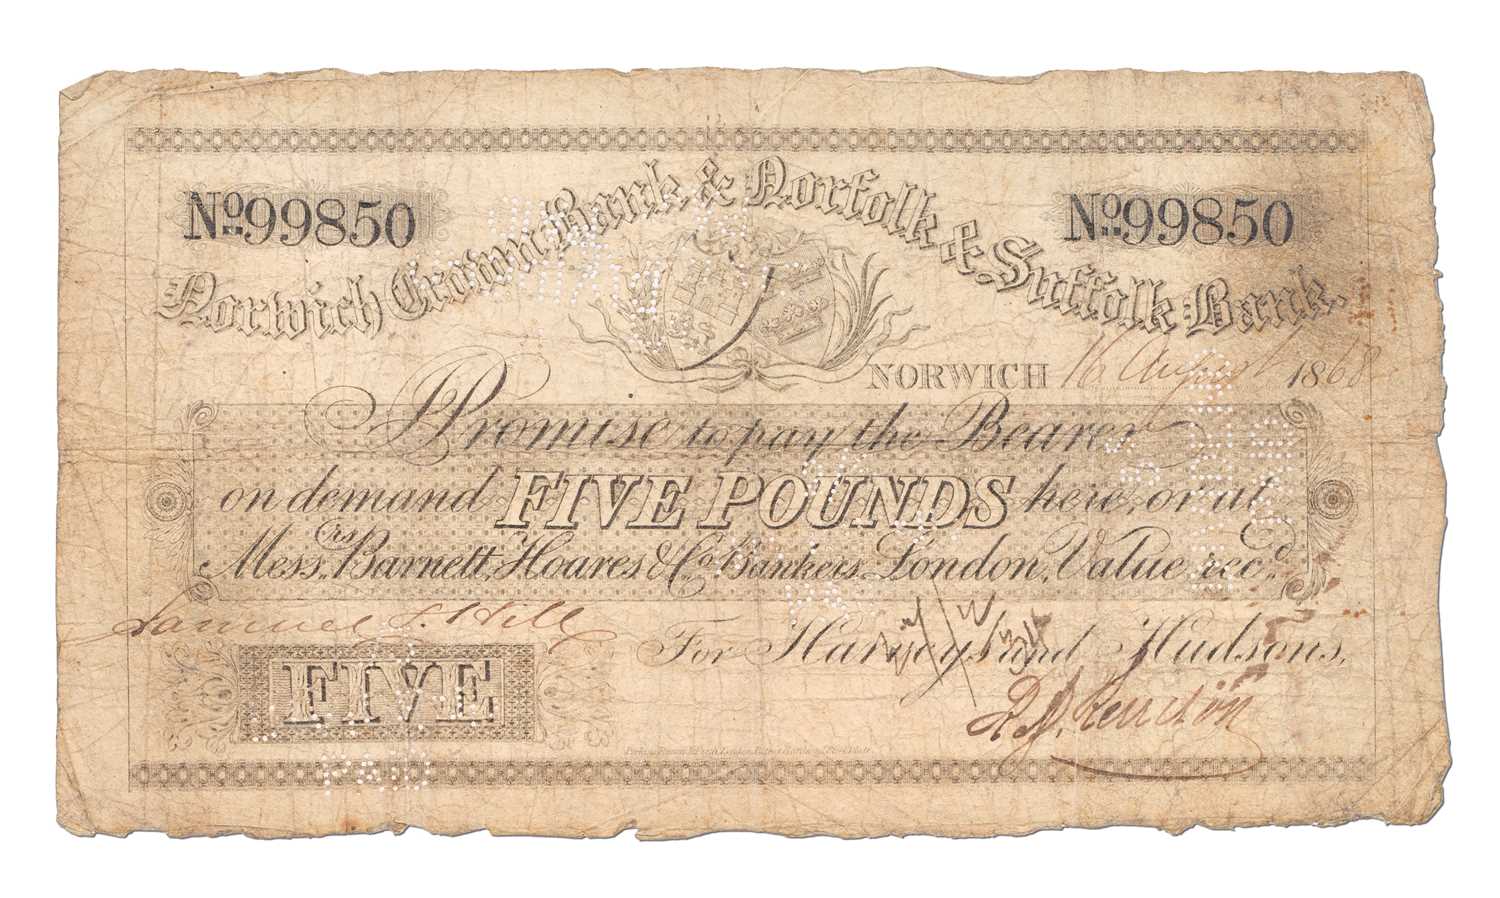 No 99850
No 99850
Norwich Crown Bank & Norfolk & Suffolk Bank.
NORWICH 16 August 1868
I Promise to pay the Bearer
on demand FIVE POUNDS here, or at
Messrs. Barnett, Hoares & Co Bankers, London, Value recd.
Samuel S. Hill
For Harveys and Hudsons,
FIVE